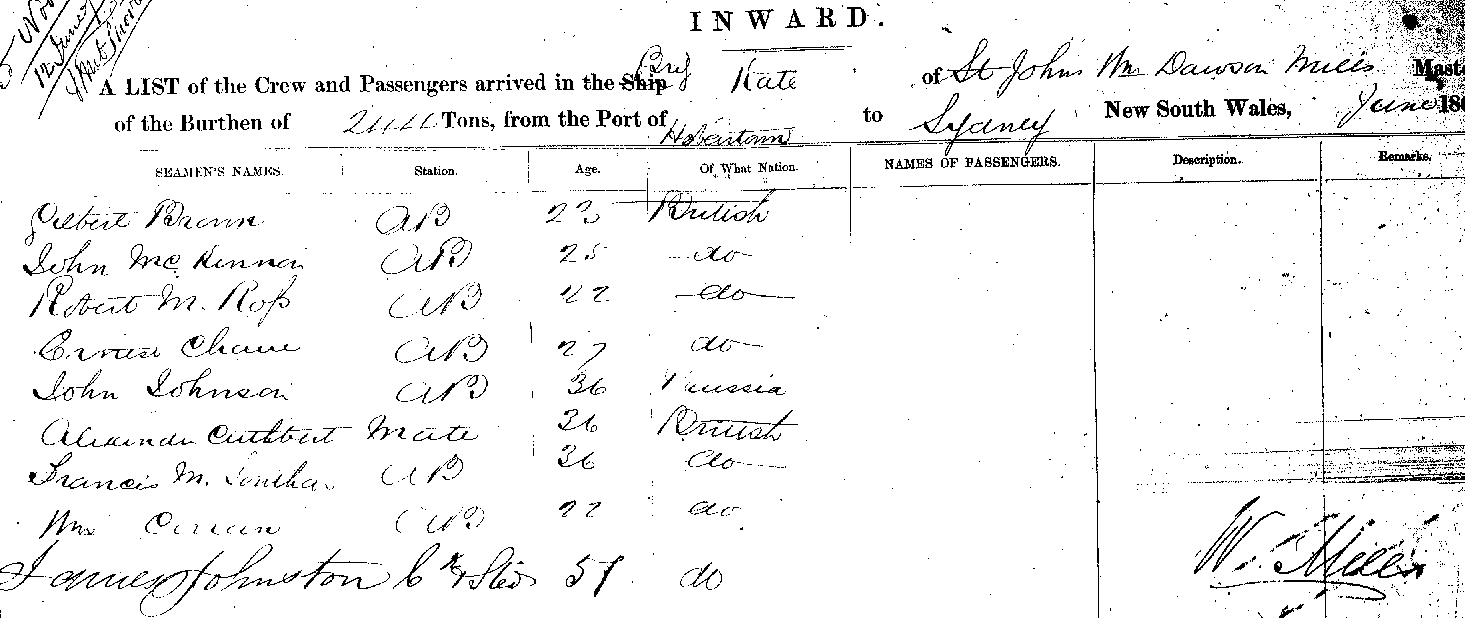 INWARD.
12 June
A LIST of the Crew and Passengers arrived in the Ship Brig Kate of St Johns Wm Dawson Mills Maste
of the Burthen of Tons, from the Port of Hobartown to Sydney New South Wales, June 186
SEAMEN'S NAMES. Station. Age. Of What Nation. NAMES OF PASSENGERS. Description. Remarks.
Gilbert Brown AB 23 British
John McKinnon AB 25 do
Robert M. Ross AB 22 do
Chane AB 27 do
John Johnson AB 36 Prussia
Alexander Cuthbert Mate 36 British
Francis M. AB 36 do
Wm Curran AB 22 do
James Johnston Ck & Stew 57 do
W. Mills